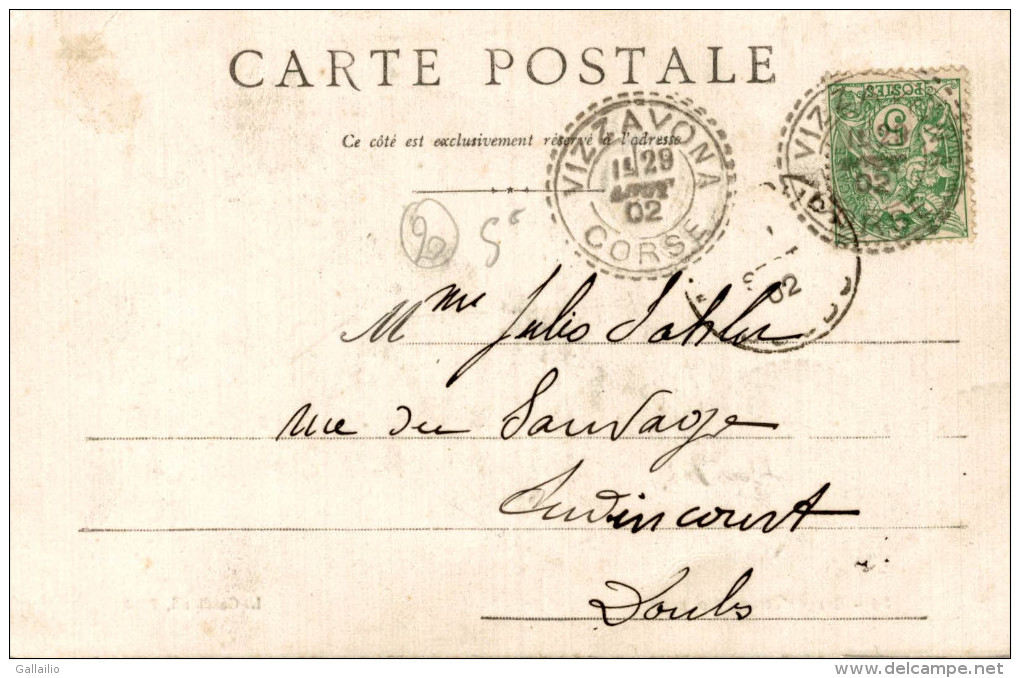 CARTE POSTALE
Ce côté est exclusivement réservé à l'adresse
VIZZAVONA
1E 29
AOUT
02
CORSE
POSTES
5
VIZZ
29
02
02
20 5€
Mme Julio
rue du Sauvage
Audincourt
Doubs
Gallailio
www.delcampe.net